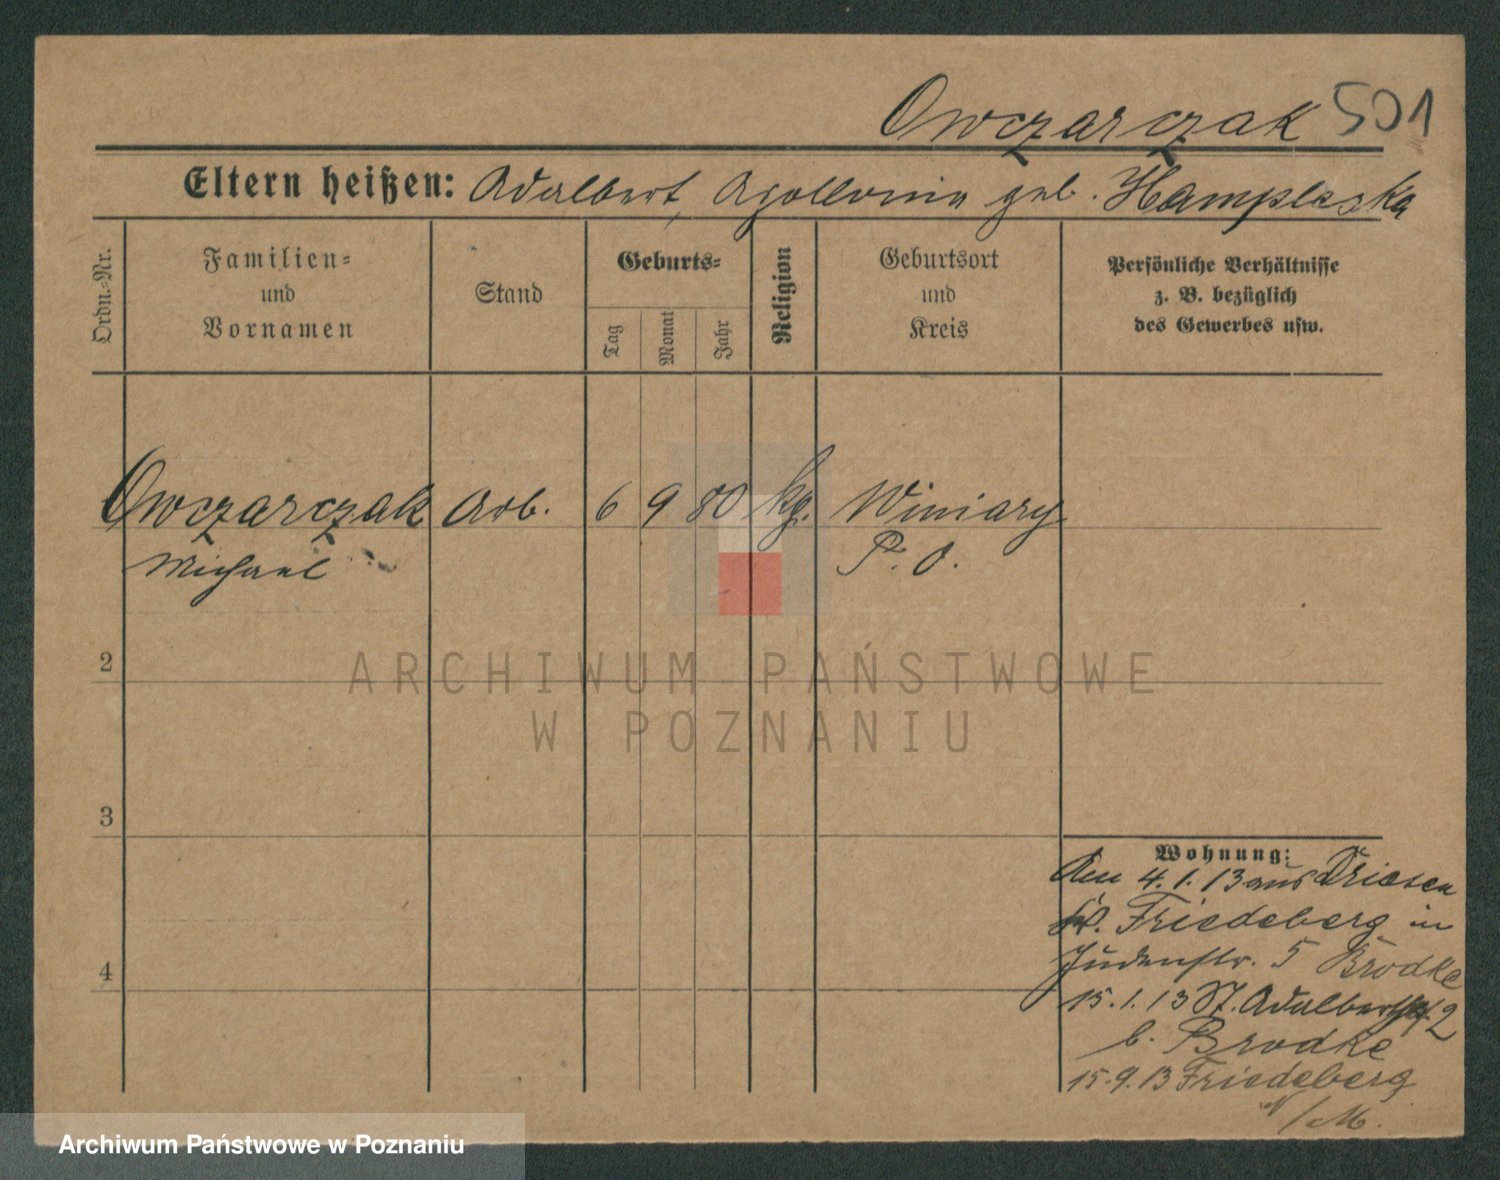 Owczarczak 501
Eltern heißen: Adalbert, Apollonia geb. Hampelska
Ordn.-Nr.
Familien-
und
Vornamen
Stand
Geburts-
Tag
Monat
Jahr
Religion
Geburtsort
und
Kreis
Persönliche Verhältnisse
z. B. bezüglich
des Gewerbes usw.
Owczarczak Arb. 6 9 80 kg. Winiary
Michael P. O.
2
ARCHIWUM PAŃSTWOWE
W POZNANIU
3
4
Wohnung:
Am 4.1.13 aus Driesen
Friedeberg in
Judenstr. 5 Brodke
15.1.13 St. Adalbert 2
b. Brodke
15.9.13 Friedeberg
N/M.
Archiwum Państwowe w Poznaniu